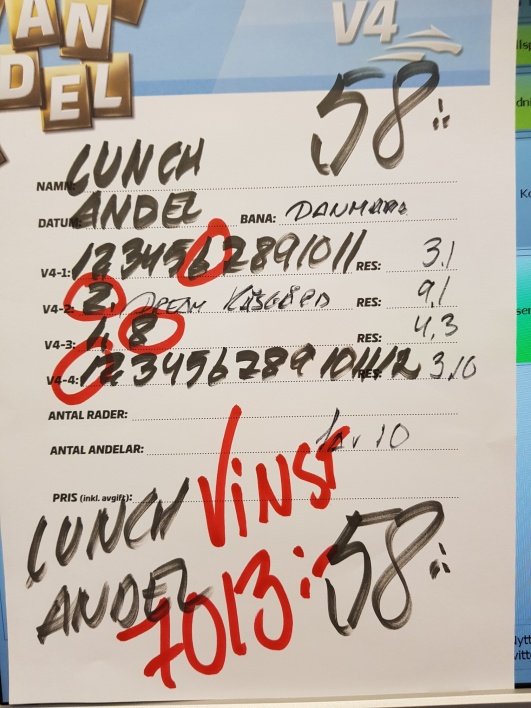 AN
DEL
V4
58:-
NAMN: LUNCH
DATUM: ANDEL BANA: DANMARK
V4-1: 1 2 3 4 5 6 7 8 9 10 11 RES: 3,1
V4-2: 2, DREAM RES: 9,1
V4-3: 1, 8 RES: 4,3
V4-4: 1 2 3 4 5 6 7 8 9 10 11 12 RES: 3,10
ANTAL RADER:
ANTAL ANDELAR: 1 av 10
PRIS (inkl. avgift):
LUNCH VINST
ANDEL 58:-
7013:-